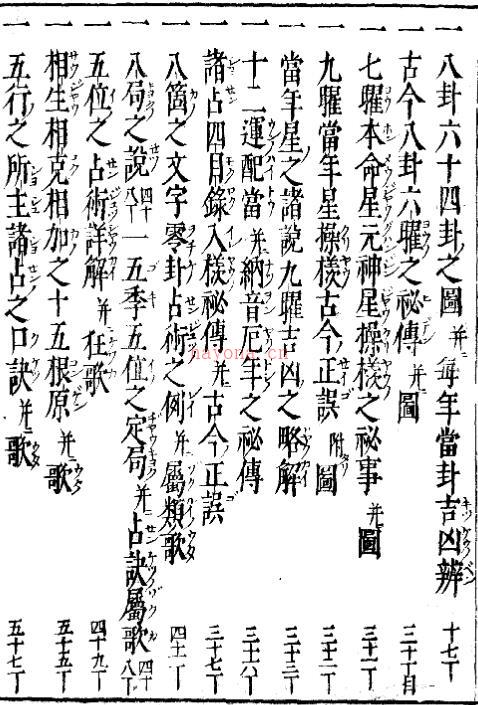 一 八卦六十四卦之圖 并ニ 每年當卦吉凶辨 十七丁
一 古今八卦六曜之祕傳 并ニ 圖 三十丁目
一 七曜本命星元神星操樣之祕事 并ニ 圖 三十一丁
一 九曜當年星操樣古今正誤 附 圖 三十二丁
一 當年星之諸說九曜吉凶之略解 三十三丁
一 十二運配當 并ニ 納音厄年之祕傳 三十六丁
一 諸占四目錄入樣祕傳 并ニ 古今正誤 三十七丁
一 八箇之文字零卦占術之例 并ニ 屬類歌
一 八局之說 一五季五位之定局 并ニ 占訣屬歌
一 五位之占術詳解 并ニ 狂歌 四十九丁
一 相生相克相加之十五根原 并ニ 歌 五十五丁
一 五行之所主諸占之口訣 并ニ 歌 五十七丁
hayona.cn